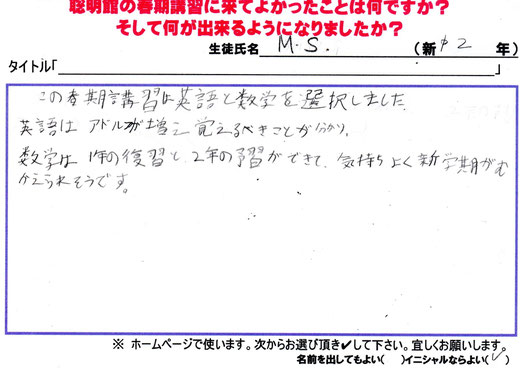 聡明館の春期講習に来てよかったことは何ですか？
そして何が出来るようになりましたか？
生徒氏名 M.S. （新 中2 年）
タイトル「 」
この春期講習は英語と数学を選択しました
英語は が増え覚えるべきことが分かり、
数学は1年の復習と、2年の予習ができて、気持ちよく新学期がむ
かえられそうです。
※ ホームページで使います。次からお選び頂き✓して下さい。宜しくお願いします。
名前を出してもよい（ ）イニシャルならよい（✓）